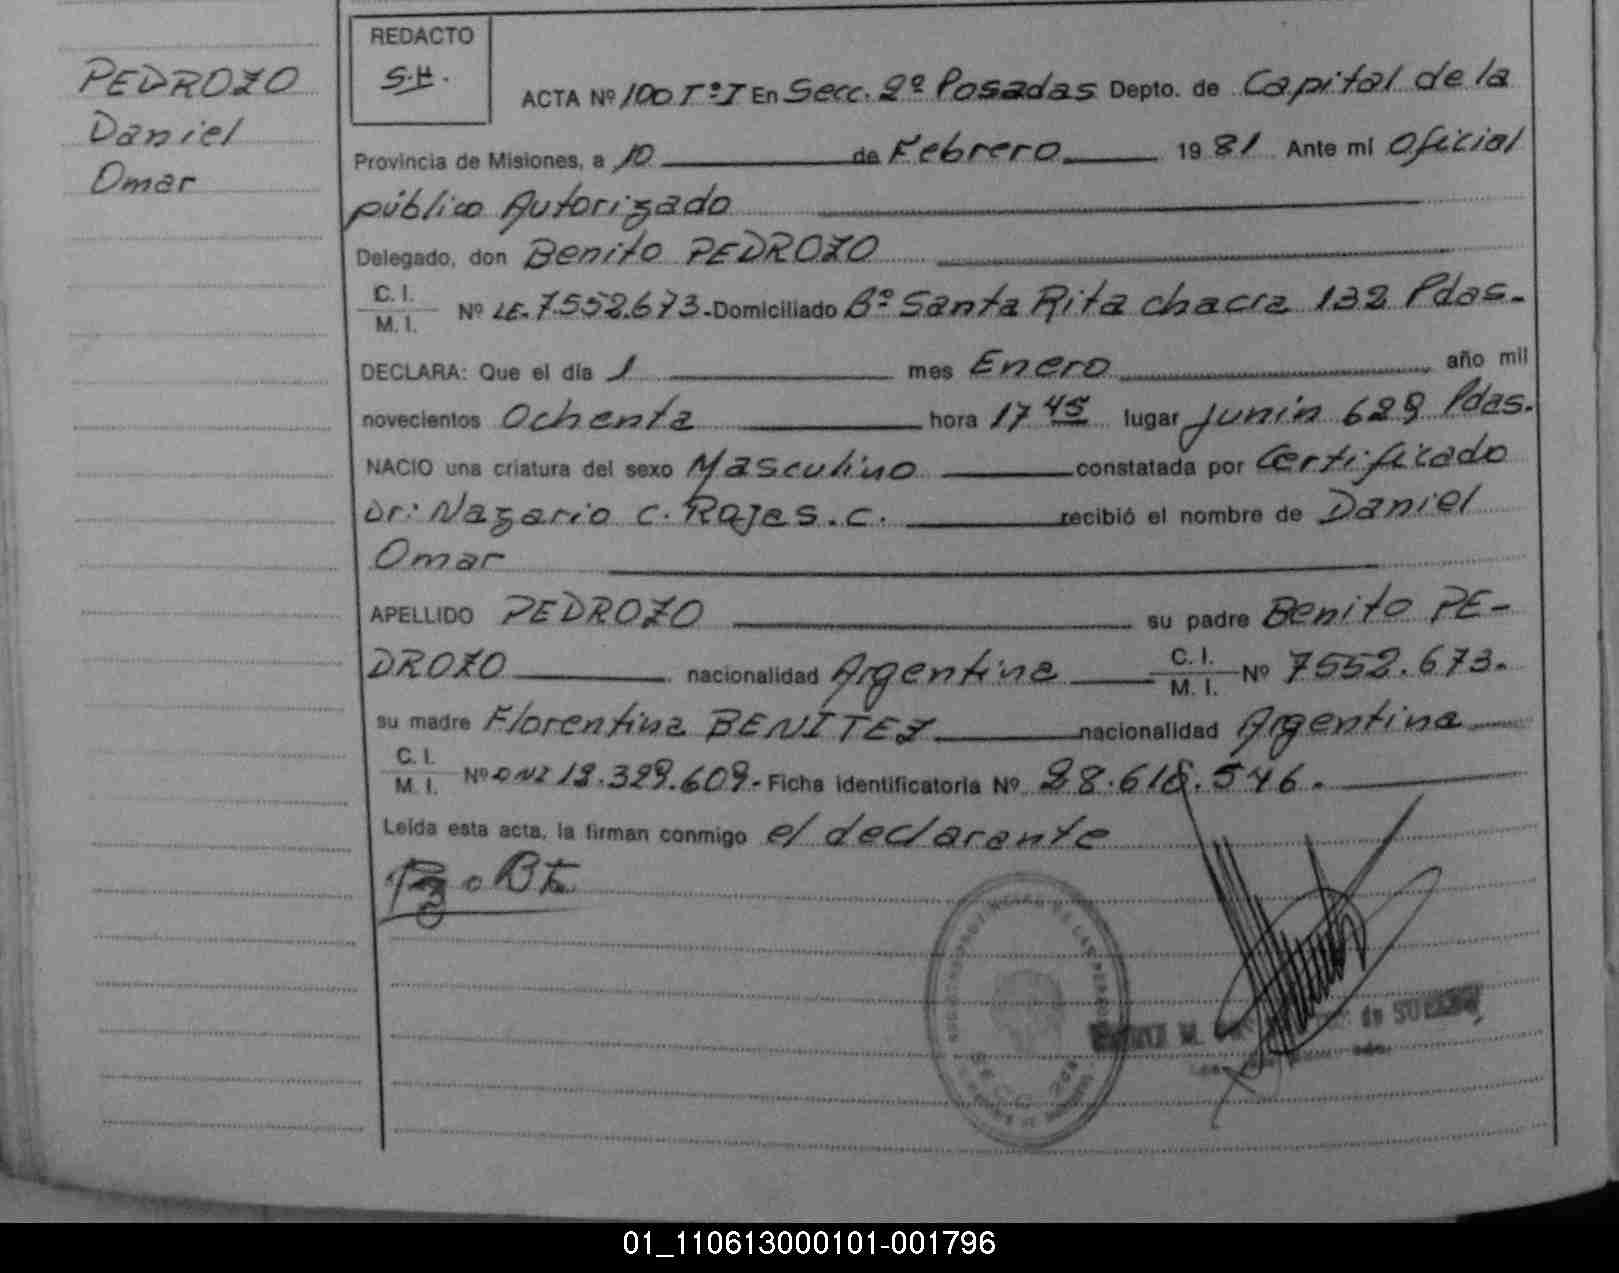 PEDROZO
Daniel
Omar
REDACTO
S.H.
ACTA Nº 100 Tº I En Secc. 2º Posadas Depto. de Capital de la
Provincia de Misiones, a 10 de Febrero 1981 Ante mi Oficial
público Autorizado
Delegado, don Benito PEDROZO
C. I.
M. I. Nº LE. 7.552.673.- Domiciliado Bº Santa Rita chacra 132 Pdas.-
DECLARA: Que el día 1 mes Enero año mil
novecientos Ochenta hora 17 45 lugar Junin 629 Pdas.
NACIO una criatura del sexo Masculino constatada por Certificado
Dr: Nazario C. Rojas. C. recibió el nombre de Daniel
Omar
APELLIDO PEDROZO su padre Benito PE-
DROZO nacionalidad Argentina C. I.
M. I. Nº 7552.673.
su madre Florentina BENITEZ nacionalidad Argentina
C. I.
M. I. Nº DNI 13.329.609.- Ficha identificatoria Nº 28.618.546.
Leída esta acta, la firman conmigo el declarante
de
01_110613000101-001796